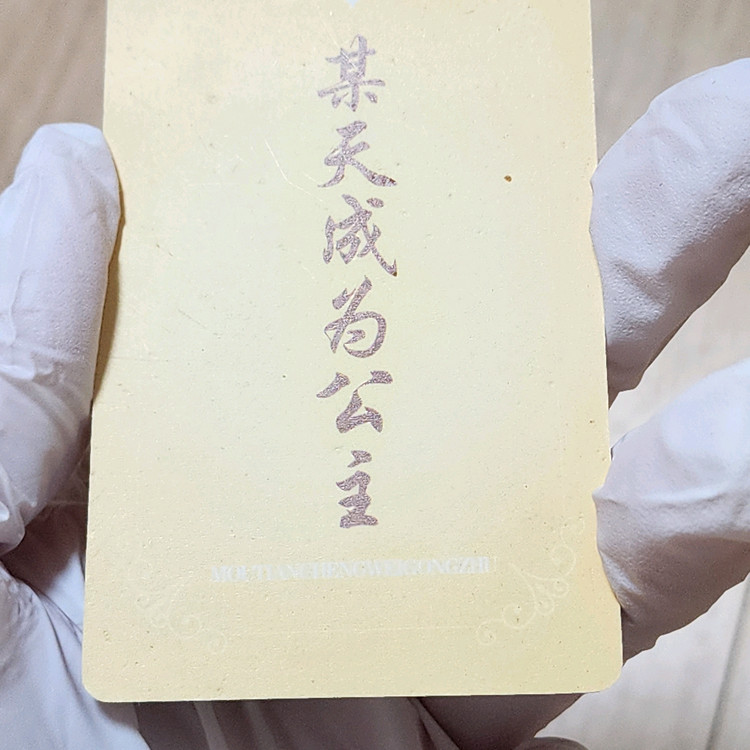 某天成为公主
MOUTIANCHENGWEIGONGZHU